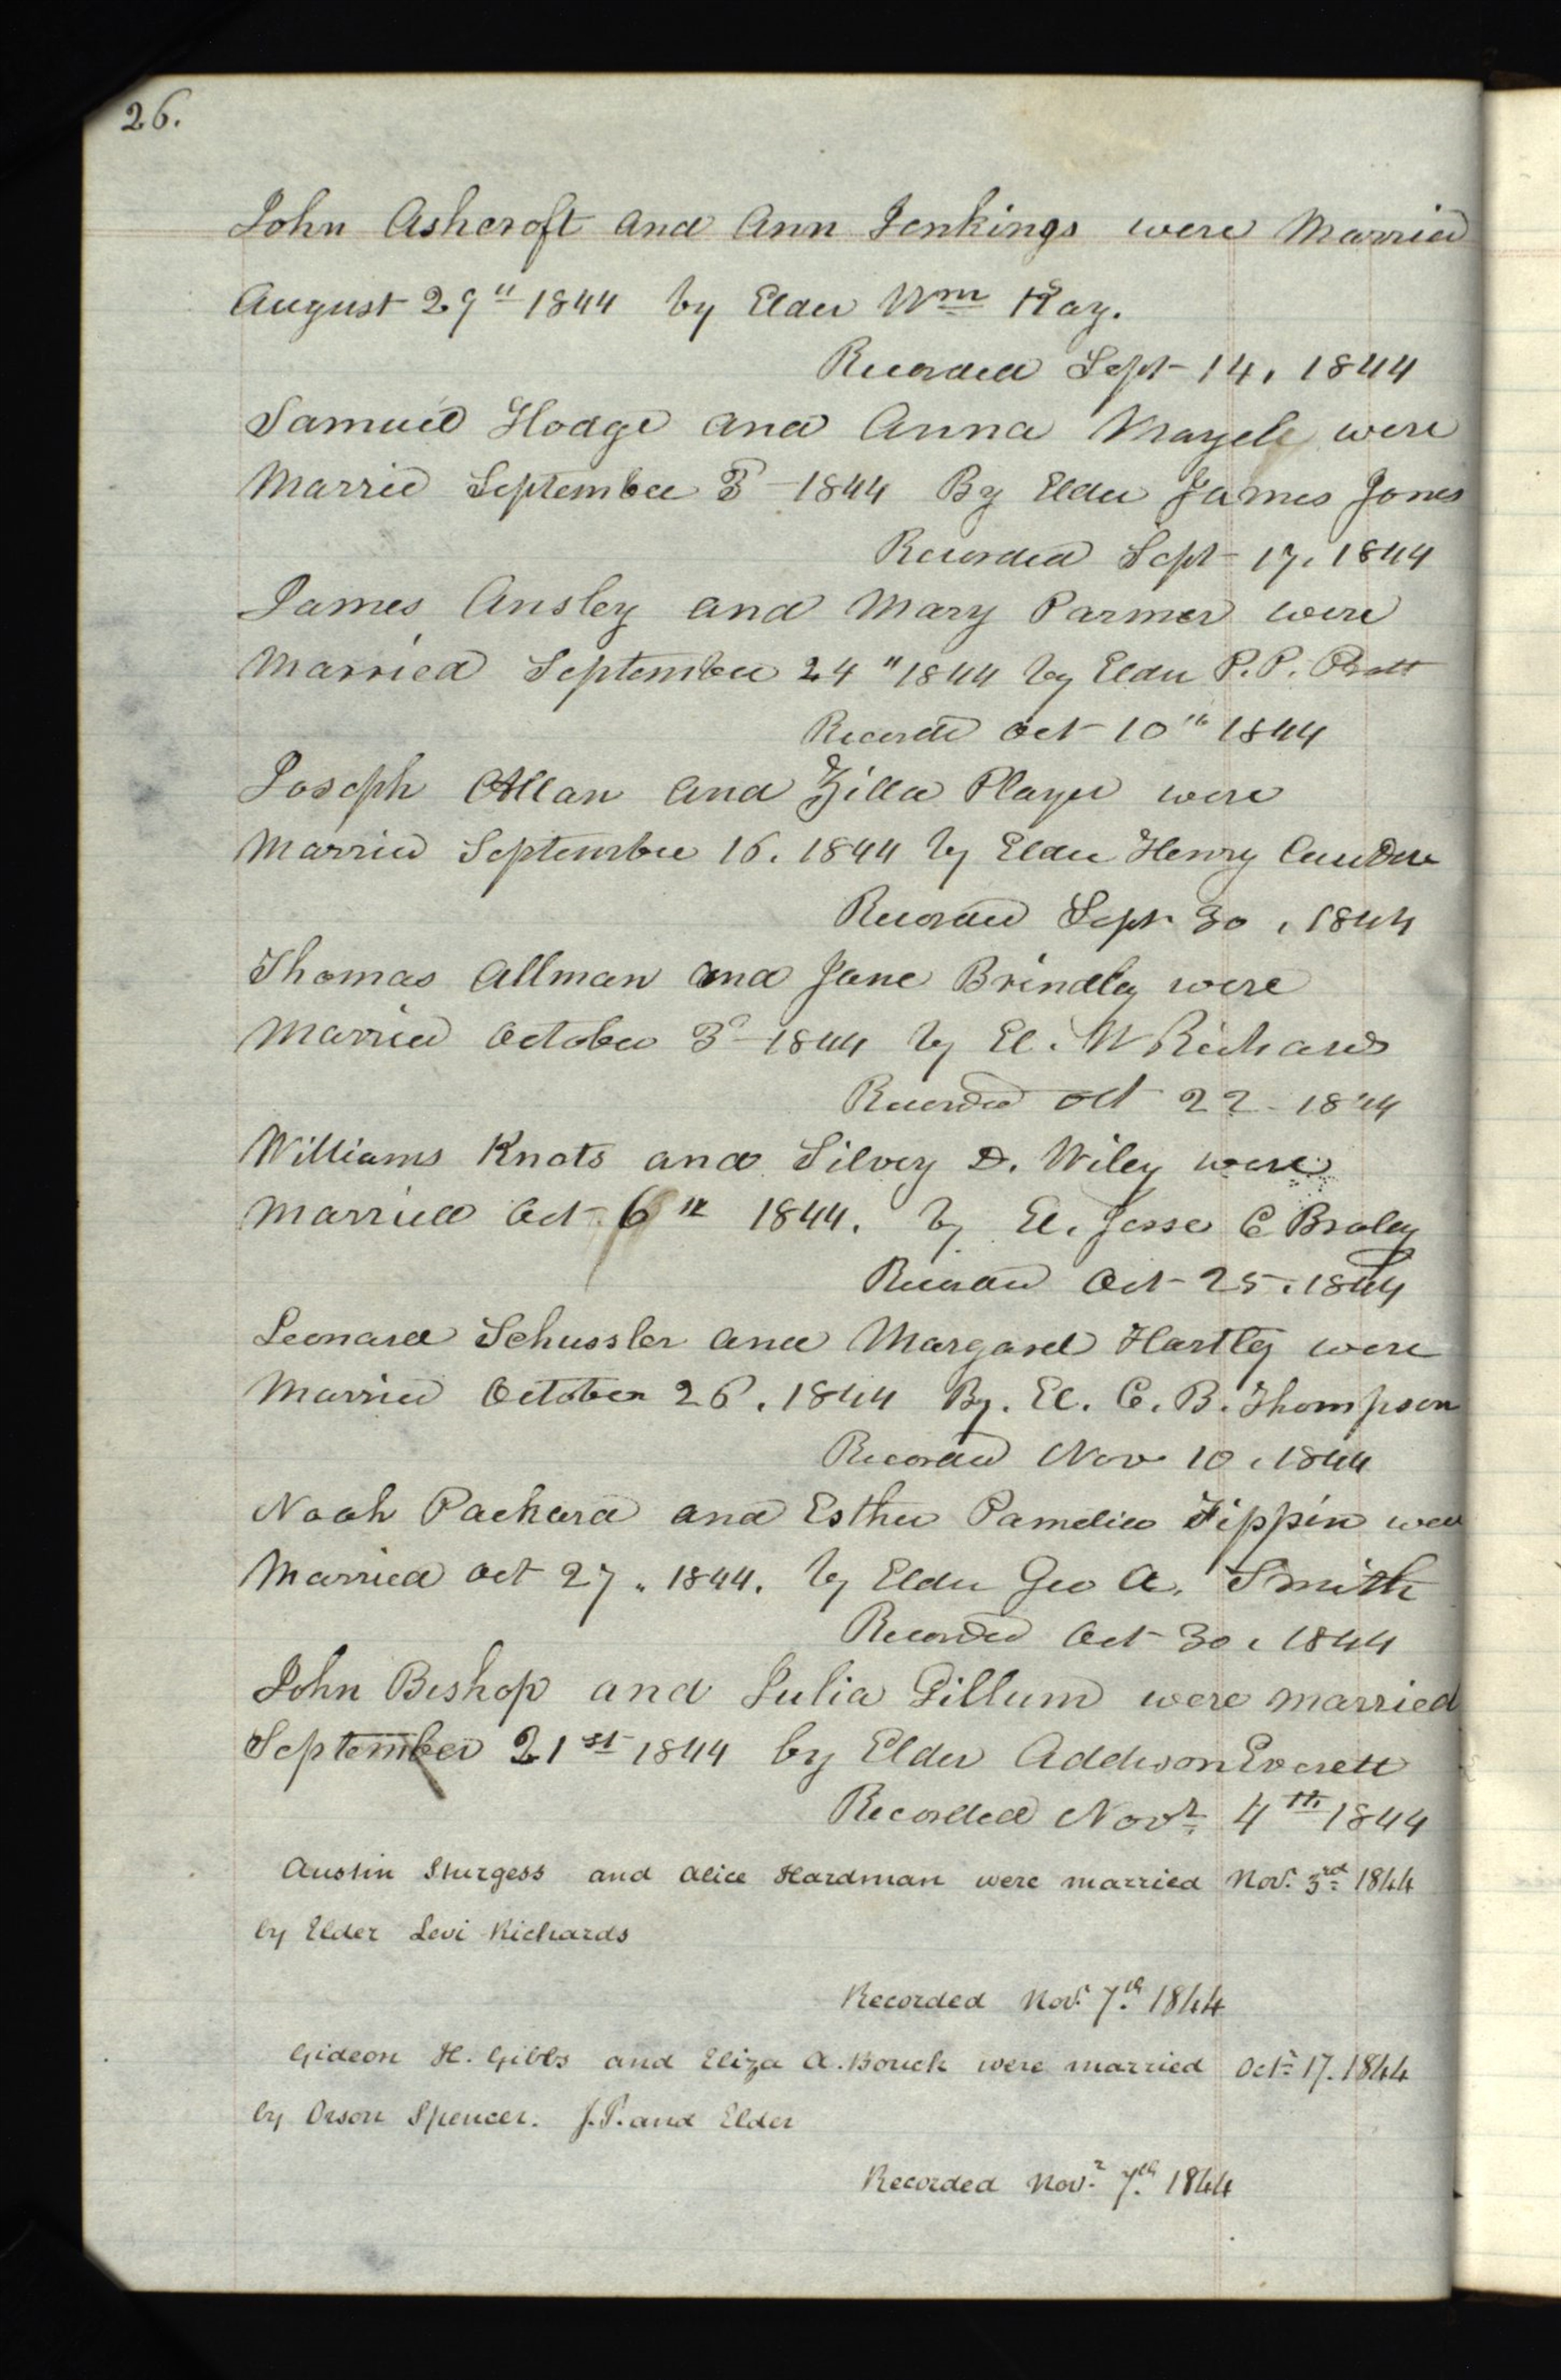 26.
John Ashcroft and Ann Jenkings were Married
August 29" 1844 by Elder Wm Kay.
Recorded Sept 14, 1844
Samuel Hodge and Anna were
Married September 3 1844 By Elder James Jones
Recorded Sept 17. 1844
James Ansley and Mary Parmer were
Married September 24 " 1844 by Elder P. P. Pratt
Recorded Oct 10th 1844
Joseph Allan and Zilla Player were
Married September 16. 1844 by Elder Henry
Recorded Sept 30, 1844
Thomas Allman and Jane Brindley were
Married October 3d 1844 by El. W Richards
Recorded Oct 22 1844
Williams Knots and Silvey D. Wiley were
Married Oct 6th 1844. by El. Jesse C Braley
Recorded Oct 25. 1844
Leonard Schussler and Margaret Hartley were
Married October 26. 1844 By. El. C. B. Thompson
Recorded Nov 10, 1844
Noah Packard and Esther Pamelia Tippin were
Married Oct 27 " 1844. by Elder Geo A. Smith
Recorded Oct 30, 1844
John Bishop and Julia Gillum were married
September 21st 1844 by Elder Addison Everett
Recorded Novr 4th 1844
Austin Sturgess and Alice Hardman were married Nov. 3rd 1844
by Elder Levi Richards
Recorded Novr 7th 1844
Gideon H. Gibbs and Eliza A. Bouck were married Octr 17. 1844
by Orson Spencer. J.P. and Elder
Recorded Novr 7th 1844